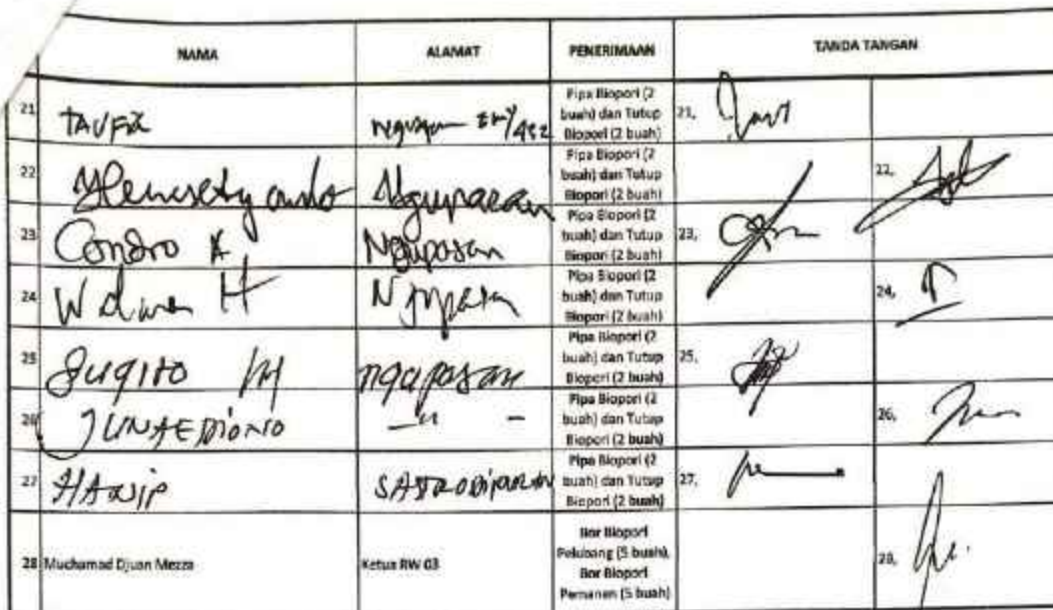 NAMA ALAMAT PENERIMAAN TANDA TANGAN
21 TAUFIK Pipa Biopori (2 buah) dan Tutup Biopori (2 buah) 21,
22 Pipa Biopori (2 buah) dan Tutup Biopori (2 buah) 22,
23 Condro A Ngupasan Pipa Biopori (2 buah) dan Tutup Biopori (2 buah) 23,
24 H Pipa Biopori (2 buah) dan Tutup Biopori (2 buah) 24,
25 Sugito M ngupasan Pipa Biopori (2 buah) dan Tutup Biopori (2 buah) 25,
26 JUNAEDIONO —"— Pipa Biopori (2 buah) dan Tutup Biopori (2 buah) 26,
27 Pipa Biopori (2 buah) dan Tutup Biopori (2 buah) 27,
28 Muchamad Djuan Mezza Ketua RW 03 Bor Biopori Pelubang (5 buah), Bor Biopori Pemanen (5 buah) 28,